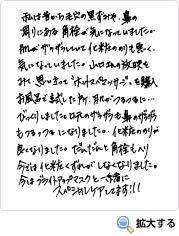 私は昔から毛穴の黒ずみや、鼻の
周りにある角栓が気になっていました。
肌がザラザラしていて化粧のりも悪く、
気になっていました。口コミの評価を
みて、思い切って「ホットスペッサージ」を購入
お風呂で試した所、肌がツルツルに…
びっくりしました。口元のザラザラも鼻のザラザラ
もツルツルになりました。化粧ののりが
良くなりました。だんだんと角栓もへり
今では化粧くずれがしなくなりました。
今はブライトアップマスクと一緒に
スペシャルケアしてます!!!
拡大する